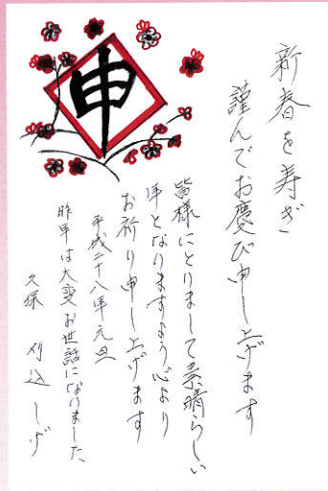 申
新春を寿ぎ
謹んでお慶び申し上げます
皆様にとりまして素晴らしい
年となりますよう心より
お祈り申し上げます
平成二十八年元旦
昨年は大変お世話になりました
久保 刈込 しげ